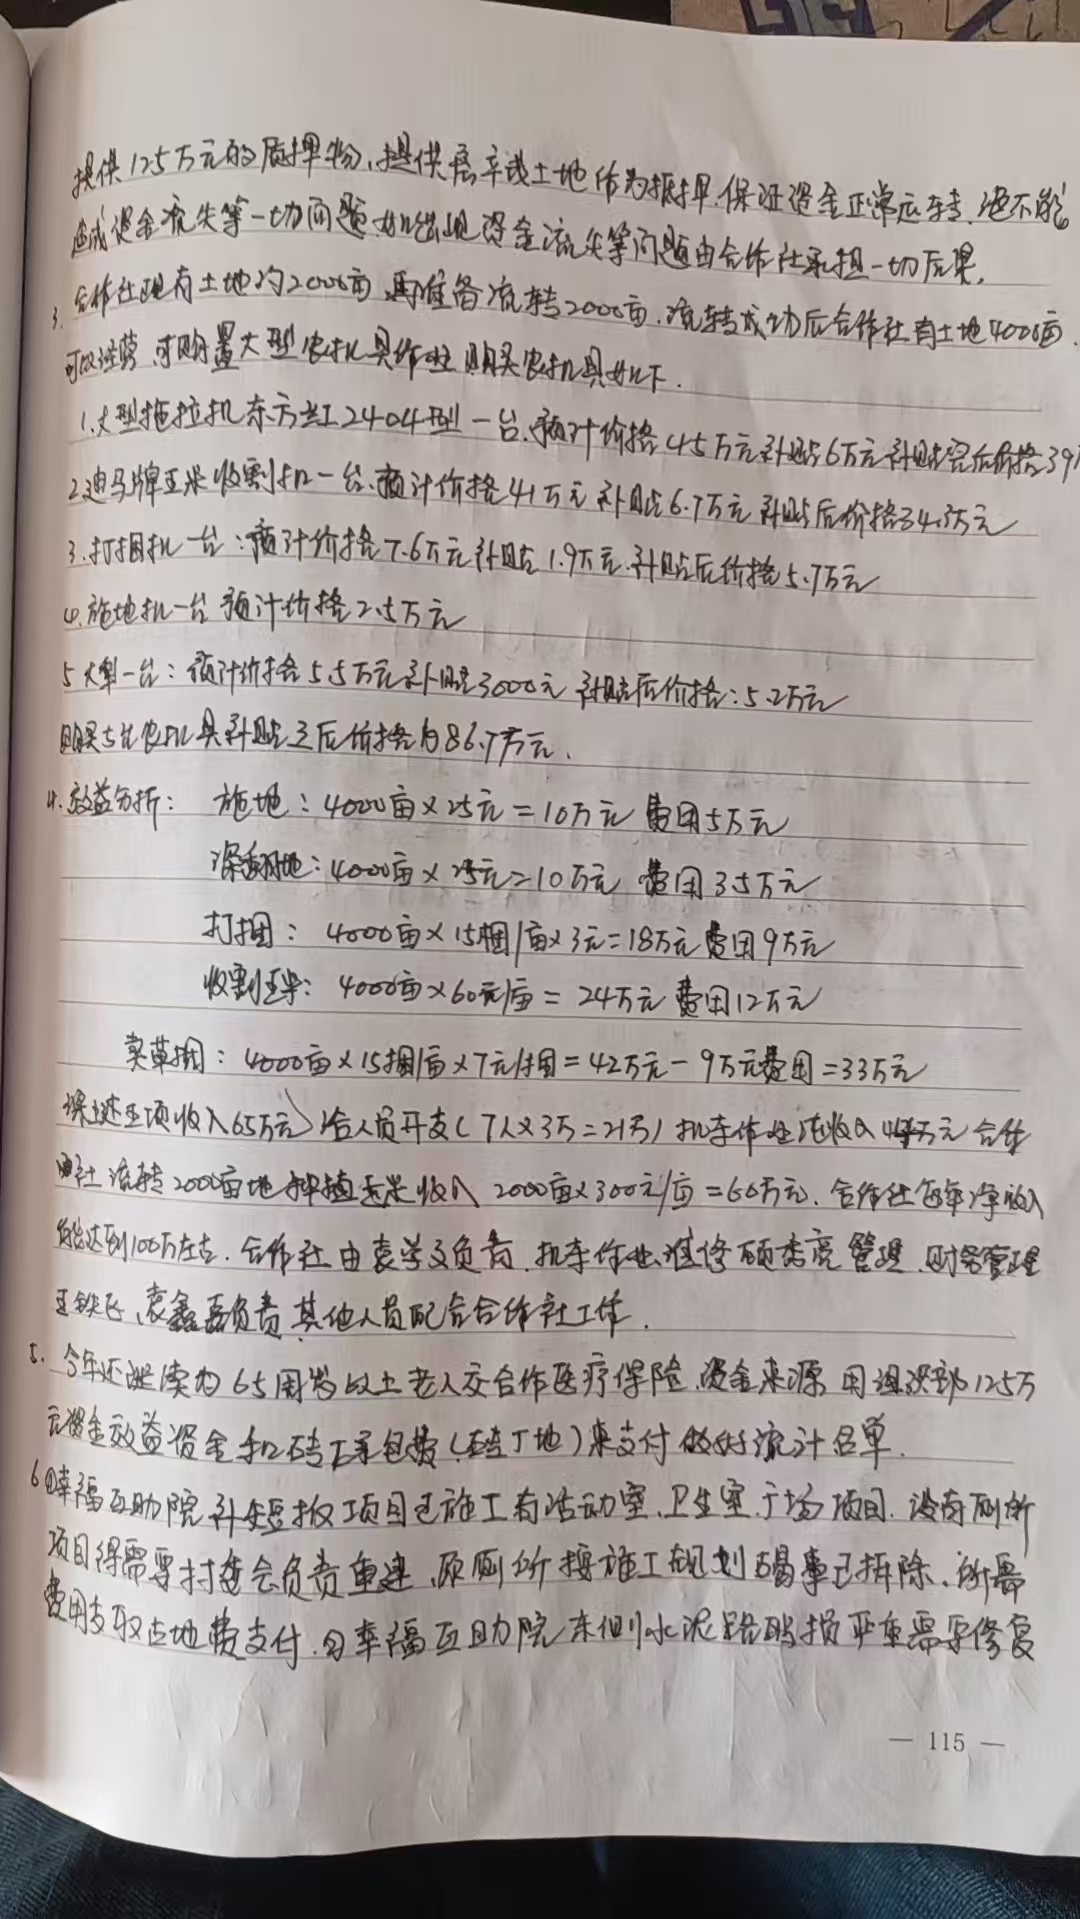 提供125万元的质押物,提供房车或土地作为抵押.保证资金正常运转,决不能
造成资金流失等一切问题,如出现资金流失等问题由合作社承担一切后果.
3. 合作社现有土地约2000亩,再准备流转2000亩.流转成功后合作社有土地4000亩.
可以经营,可购置大型农机具作业 购买农机具如下.
1.大型拖拉机东方红2404型一台.预计价格45万元补贴6万元补贴完后价格39
2.迪马牌玉米收割机一台.预计价格41万元 补贴6.7万元 补贴后价格34.3万元
3.打捆机一台:预计价格7.6万元补贴1.9万元.补贴后价格5.7万元
4.施地机一台 预计价格2.5万元
5大犁一台:预计价格5.5万元补贴3000元 补贴后价格:5.2万元
购买5台农机具补贴之后价格为86.7万元.
4.效益分折: 施地:4000亩×25元=10万元 费用5万元
深翻地:4000亩×25元=10万元 费用3.5万元
打捆: 4000亩×15捆/亩×3元=18万元 费用9万元
收割玉米: 4000亩×60元/亩= 24万元 费用12万元
卖草捆:4000亩×15捆/亩×7元/捆=42万元-9万元费用=33万元
上述五项收入65万元 人员开支(7人×3万=21万)机车作业纯收入44万元 合作
社流转2000亩地种植 收入 2000亩×300元/亩=60万元.合作社每年净收入
能达到100万左右.合作社由袁学文负责.机车作业维修 管理.财务管理
王铁飞、袁鑫磊负责.其他人员配合合作社工作.
5. 今年还继续为65周岁以上老人交合作医疗保险.资金来源 用组织部125万
元资金效益资金和砖厂承包费(砖厂地)来支付 做好统计名单.
6 ①幸福互助院补短板项目已施工有活动室.卫生室.广场项目.没有厕所
项目 需要村委会负责重建.原厕所按施工规划 已拆除.所需
费用支取占地费支付.②幸福互助院东侧水泥路破损严重需要修复
— 115 —